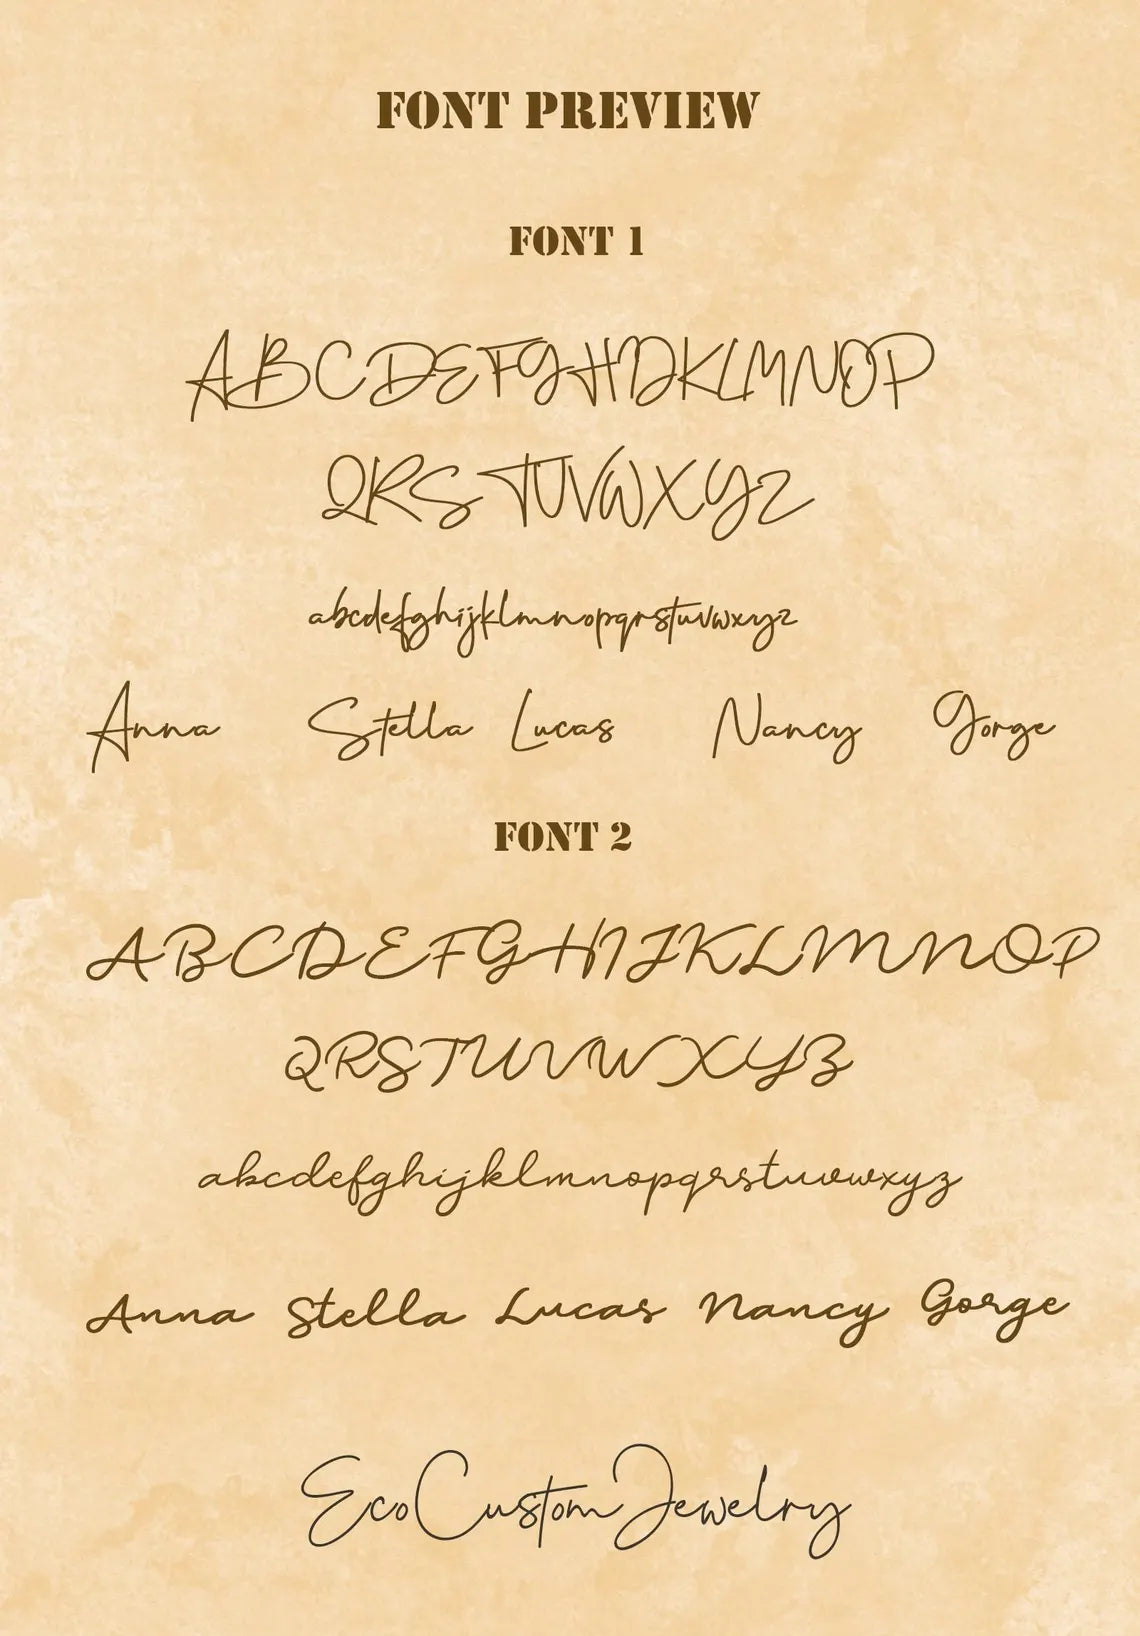 FONT PREVIEW
FONT 1
ABCDEFGHIJKLMNOP
QRSTUVWXYZ
abcdefghijklmnopqrstuvwxyz
Anna Stella Lucas Nancy Gorge
FONT 2
ABCDEFGHIJKLMNOP
QRSTUVWXYZ
abcdefghijklmnopqrstuvwxyz
Anna Stella Lucas Nancy Gorge
EcoCustomJewelry